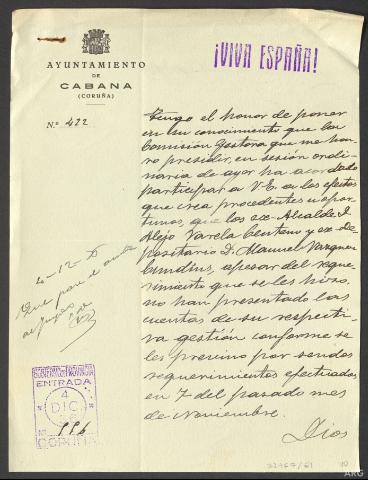 ¡VIVA ESPAÑA!
AYUNTAMIENTO
DE
CABANA
(CORUÑA)
N.º 422
Tengo el honor de poner
en su conocimiento que la
Comision Gestora que me hon-
ro presidir, en sesión ordi-
naria de ayer ha acordado
participar a V.E. a los efectos
que crea procedentes u opor-
tunos, que los ex-Alcalde D.
Alejo Varela Centeno y ex-de-
positario D. Manuel Varquez
apesar del reque-
rimiento que se les hizo,
no han presentado las
cuentas de su respecti-
va gestión conforme se
les previno por sendos
requerimientos efectuados
en 7 del pasado mes
de Noviembre.
Dios
4-12-
Que pase
ENTRADA
4
DIC.
Nº 996
CORUÑA
32467/61
10
ARG